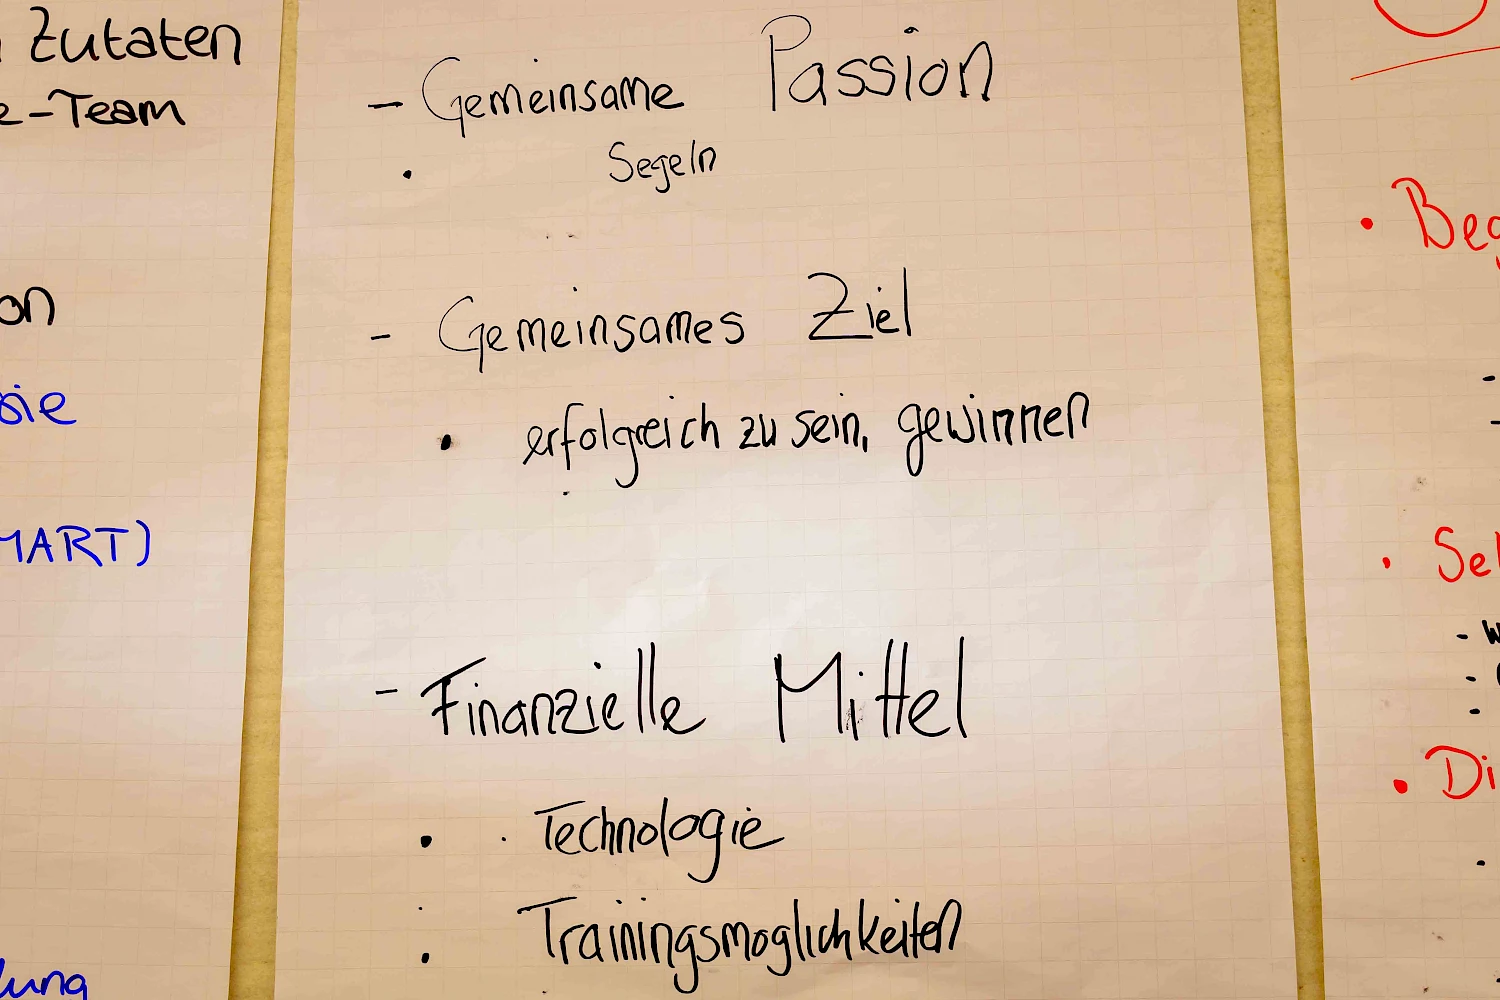 Zutaten
e-Team
on
sie
MART)
lung
- Gemeinsame Passion
• Segeln
- Gemeinsames Ziel
• erfolgreich zu sein, gewinnen
- Finanzielle Mittel
• Technologie
• Trainingsmoglichkeiten
• Beg
• Sel
• Di